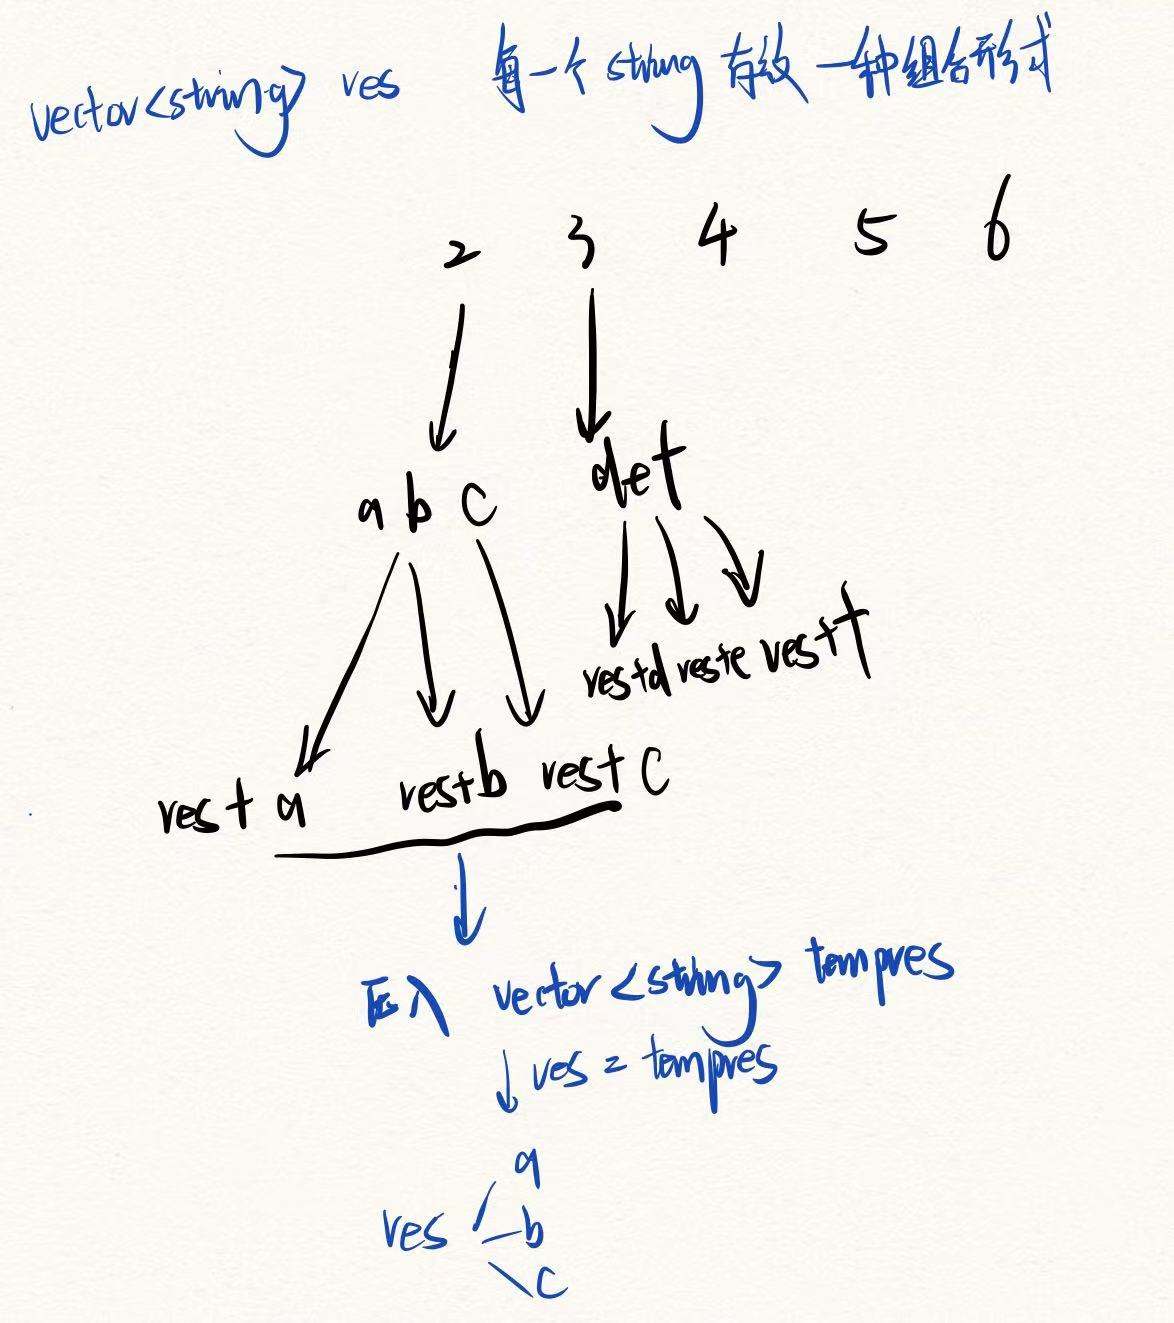 vector<string> res 每一个 string 存放 一种组合形式
2 3 4 5 6
a b c def
res+d res+e res+f
res+a res+b res+c
压入 vector<string> tempres
res = tempres
a
res b
c